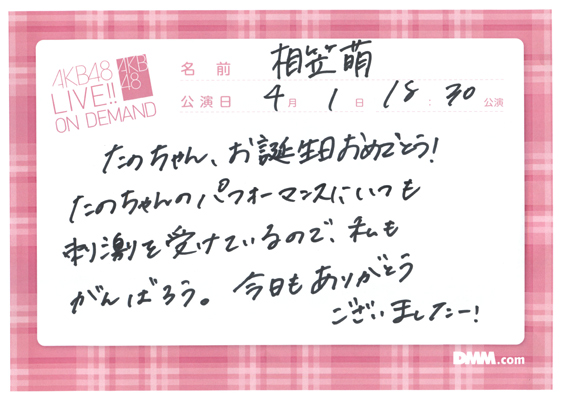 AKB48
LIVE!!
ON DEMAND
AKB
48
名前 相笠萌
公演日 4月1日 18:30公演
たのちゃん、お誕生日おめでとう!
たのちゃんのパフォーマンスにいつも
刺激を受けているので、私も
がんばろう。今日もありがとう
ございましたー!
DMM.com